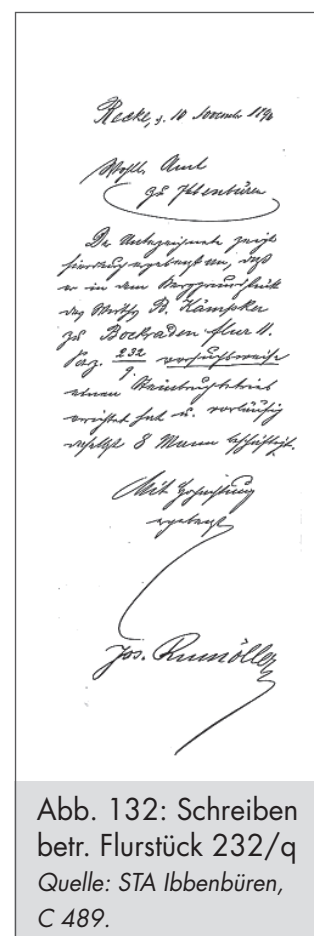 Recke, d. 10 November 1896
Wohll. Amt
zu Ibbenbüren
Der Unterzeichnete zeigt
hierdurch ergebenst an, daß
er in dem Berggrundstück
des Wirths B. Kämpker
zu Bockraden flur 11.
Parz. 232/q versuchsweise
einen Steinbruchbetrieb
errichtet hat u. vorläufig
daselbst 8 Mann beschäftigt.
Mit Hochachtung
ergebenst
Jos. Rumöller
Abb. 132: Schreiben
betr. Flurstück 232/q
Quelle: STA Ibbenbüren,
C 489.